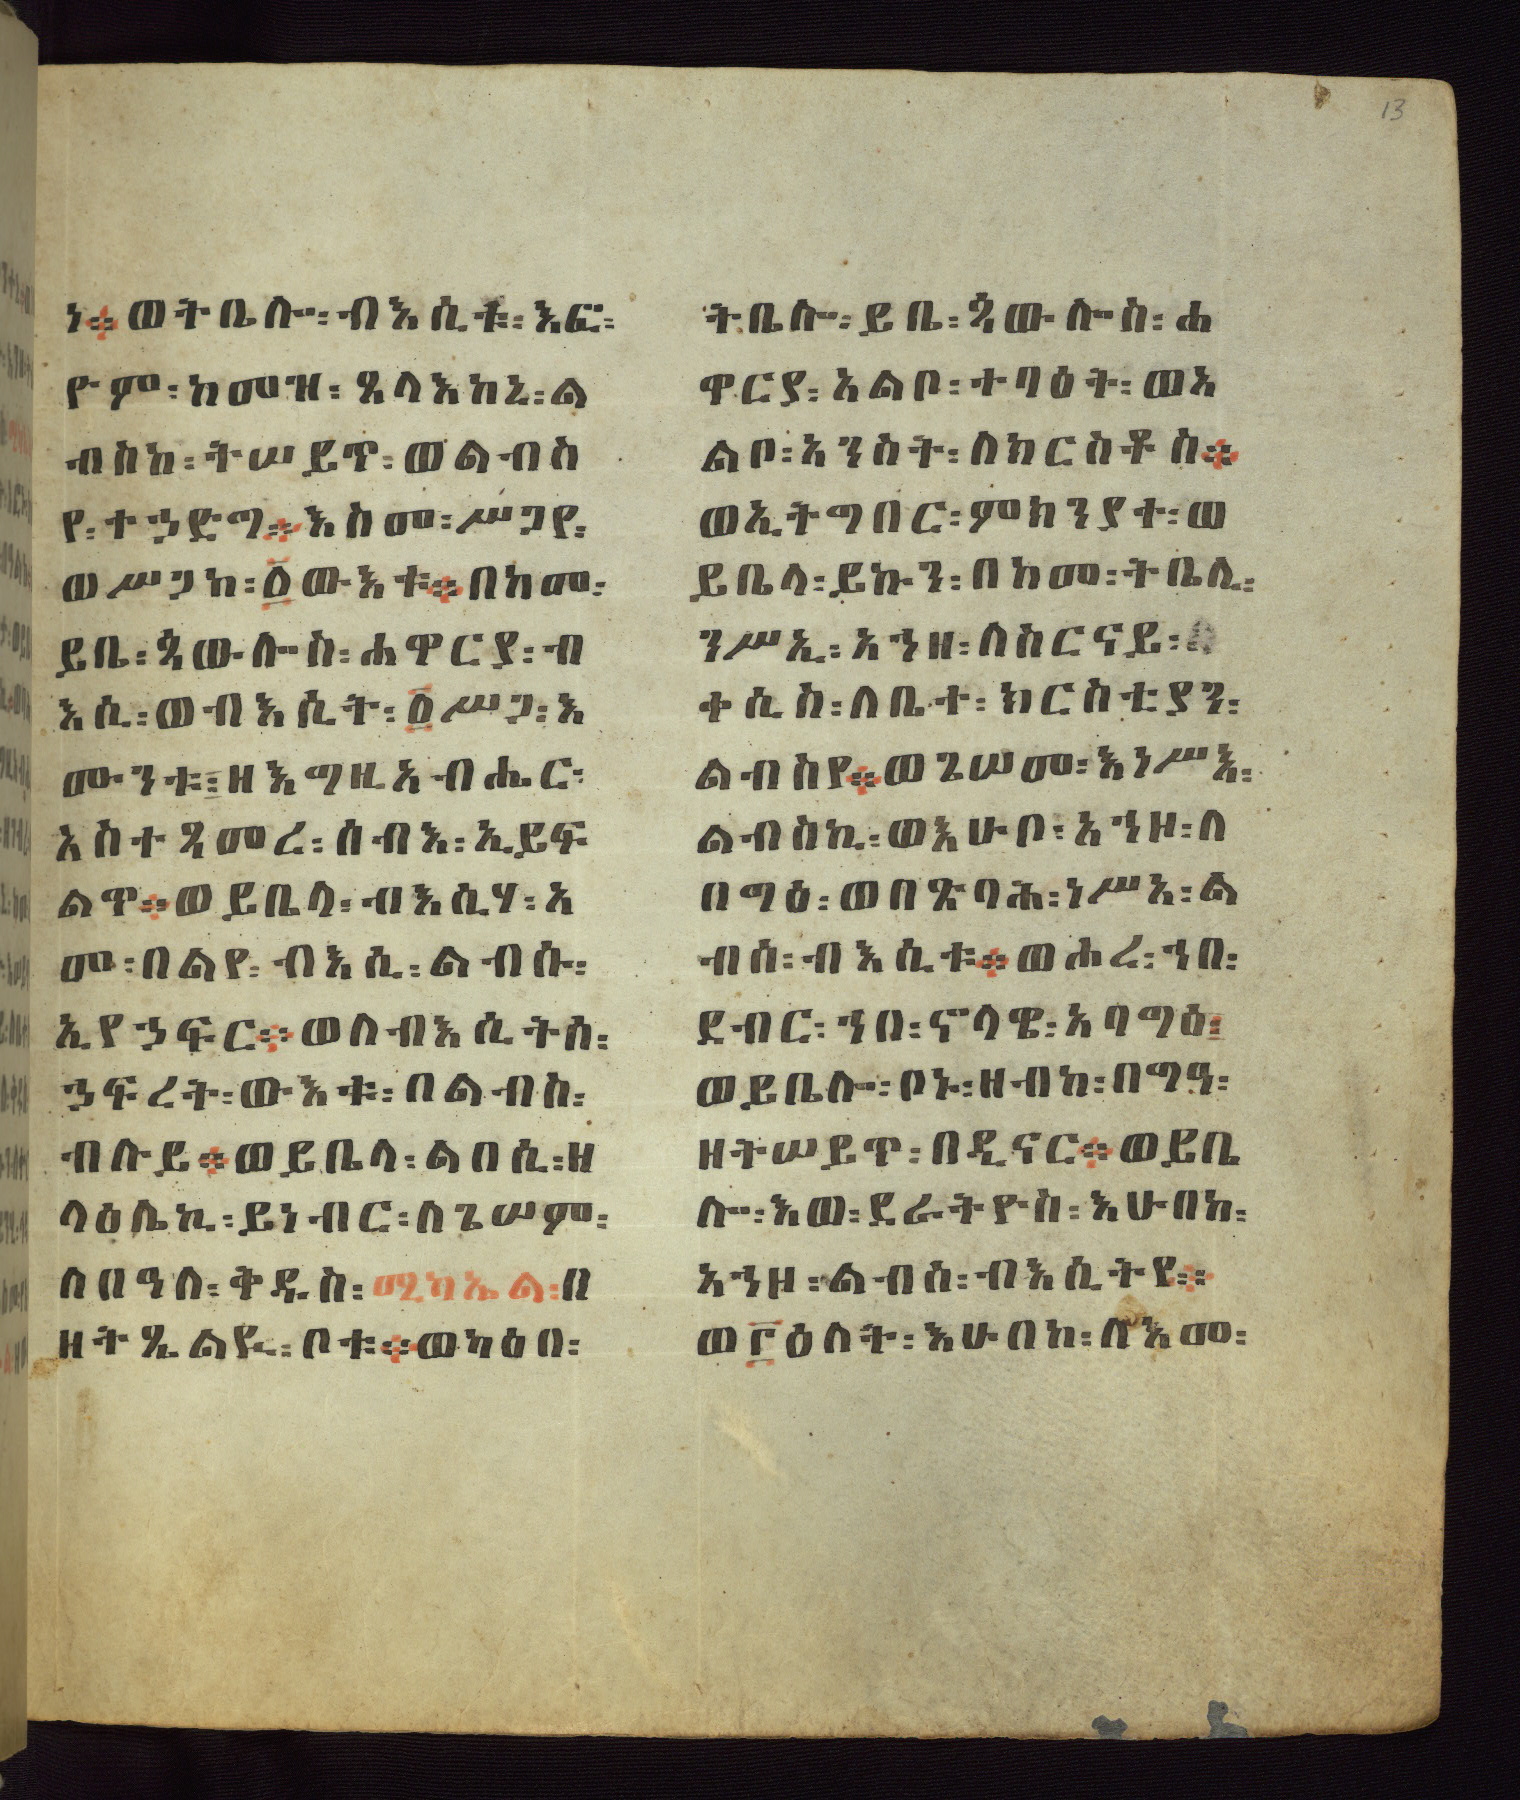 13
ነ፨ወትቤሎ፡ብእሲቱ፡እፎ፡
ዮም፡ከመዝ፡ጼላእከኒ፡ል
ብስከ፡ትሠይጥ፡ወልብስ
የ፡ተኃድግ፨እስመ፡ሥጋየ፡
ወሥጋከ፡፩ውእቱ፨በከመ፡
ይቤ፡ጳውሎስ፡ሐዋርያ፡ብ
እሲ፡ወብእሲት፡፩ሥጋ፡እ
ሙንቱ፡ዘእግዚአብሔር፡
አስተጻመረ፡ሰብእ፡ኢይፍ
ልጥ፨ወይቤላ፡ብእሲሃ፡አ
መ፡በልየ፡ብእሲ፡ልብሱ፡
ኢየኃፍር፨ወለብእሲትሰ፡
ኃፍረት፡ውእቱ፡በልብስ፡
ብሉይ፨ወይቤላ፡ልበሲ፡ዘ
ላዕሌኪ፡ይነብር፡ለጌሠም፡
ለበዓለ፡ቅዱስ፡ሚካኤል፡በ
ዘትጼልዪ፡ቦቱ፨ወካዕበ፡
ትቤሎ፡ይቤ፡ጳውሎስ፡ሐ
ዋርያ፡አልቦ፡ተባዕት፡ወአ
ልቦ፡አንስት፡ለክርስቶስ፨
ወኢትግበር፡ምክንያተ፡ወ
ይቤላ፡ይኩን፡በከመ፡ትቤሊ፡
ንሥኢ፡አንዘ፡ለስርናይ፡
ቀሲስ፡ለቤተ፡ክርስቲያን፡
ልብስየ፨ወጌሠመ፡እነሥእ፡
ልብስኪ፡ወእሁቦ፡አኀዞ፡ለ
በግዕ፡ወበጽባሕ፡ነሥአ፡ል
ብሰ፡ብእሲቱ፨ወሐረ፡ኀበ፡
ደብር፡ኀበ፡ኖላዌ፡አባግዕ፡
ወይቤሎ፡ቦኑ፡ዘብከ፡በግዓ፡
ዘትሠይጥ፡በዲናር፨ወይቤ
ሎ፡እወ፡ደራትዮስ፡እሁበከ፡
አኀዞ፡ልብሰ፡ብእሲትየ፨
ወ፫ዕለት፡እሁበከ፡ለእመ፡